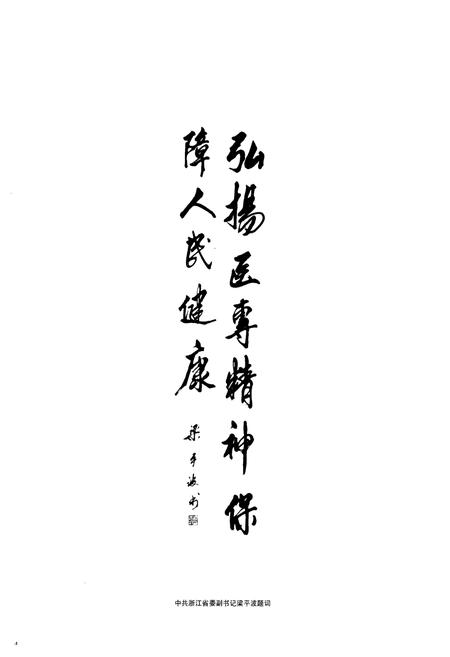 弘揚医專精神保
障人民健康
梁平波书
中共浙江省委副书记梁平波题词
4